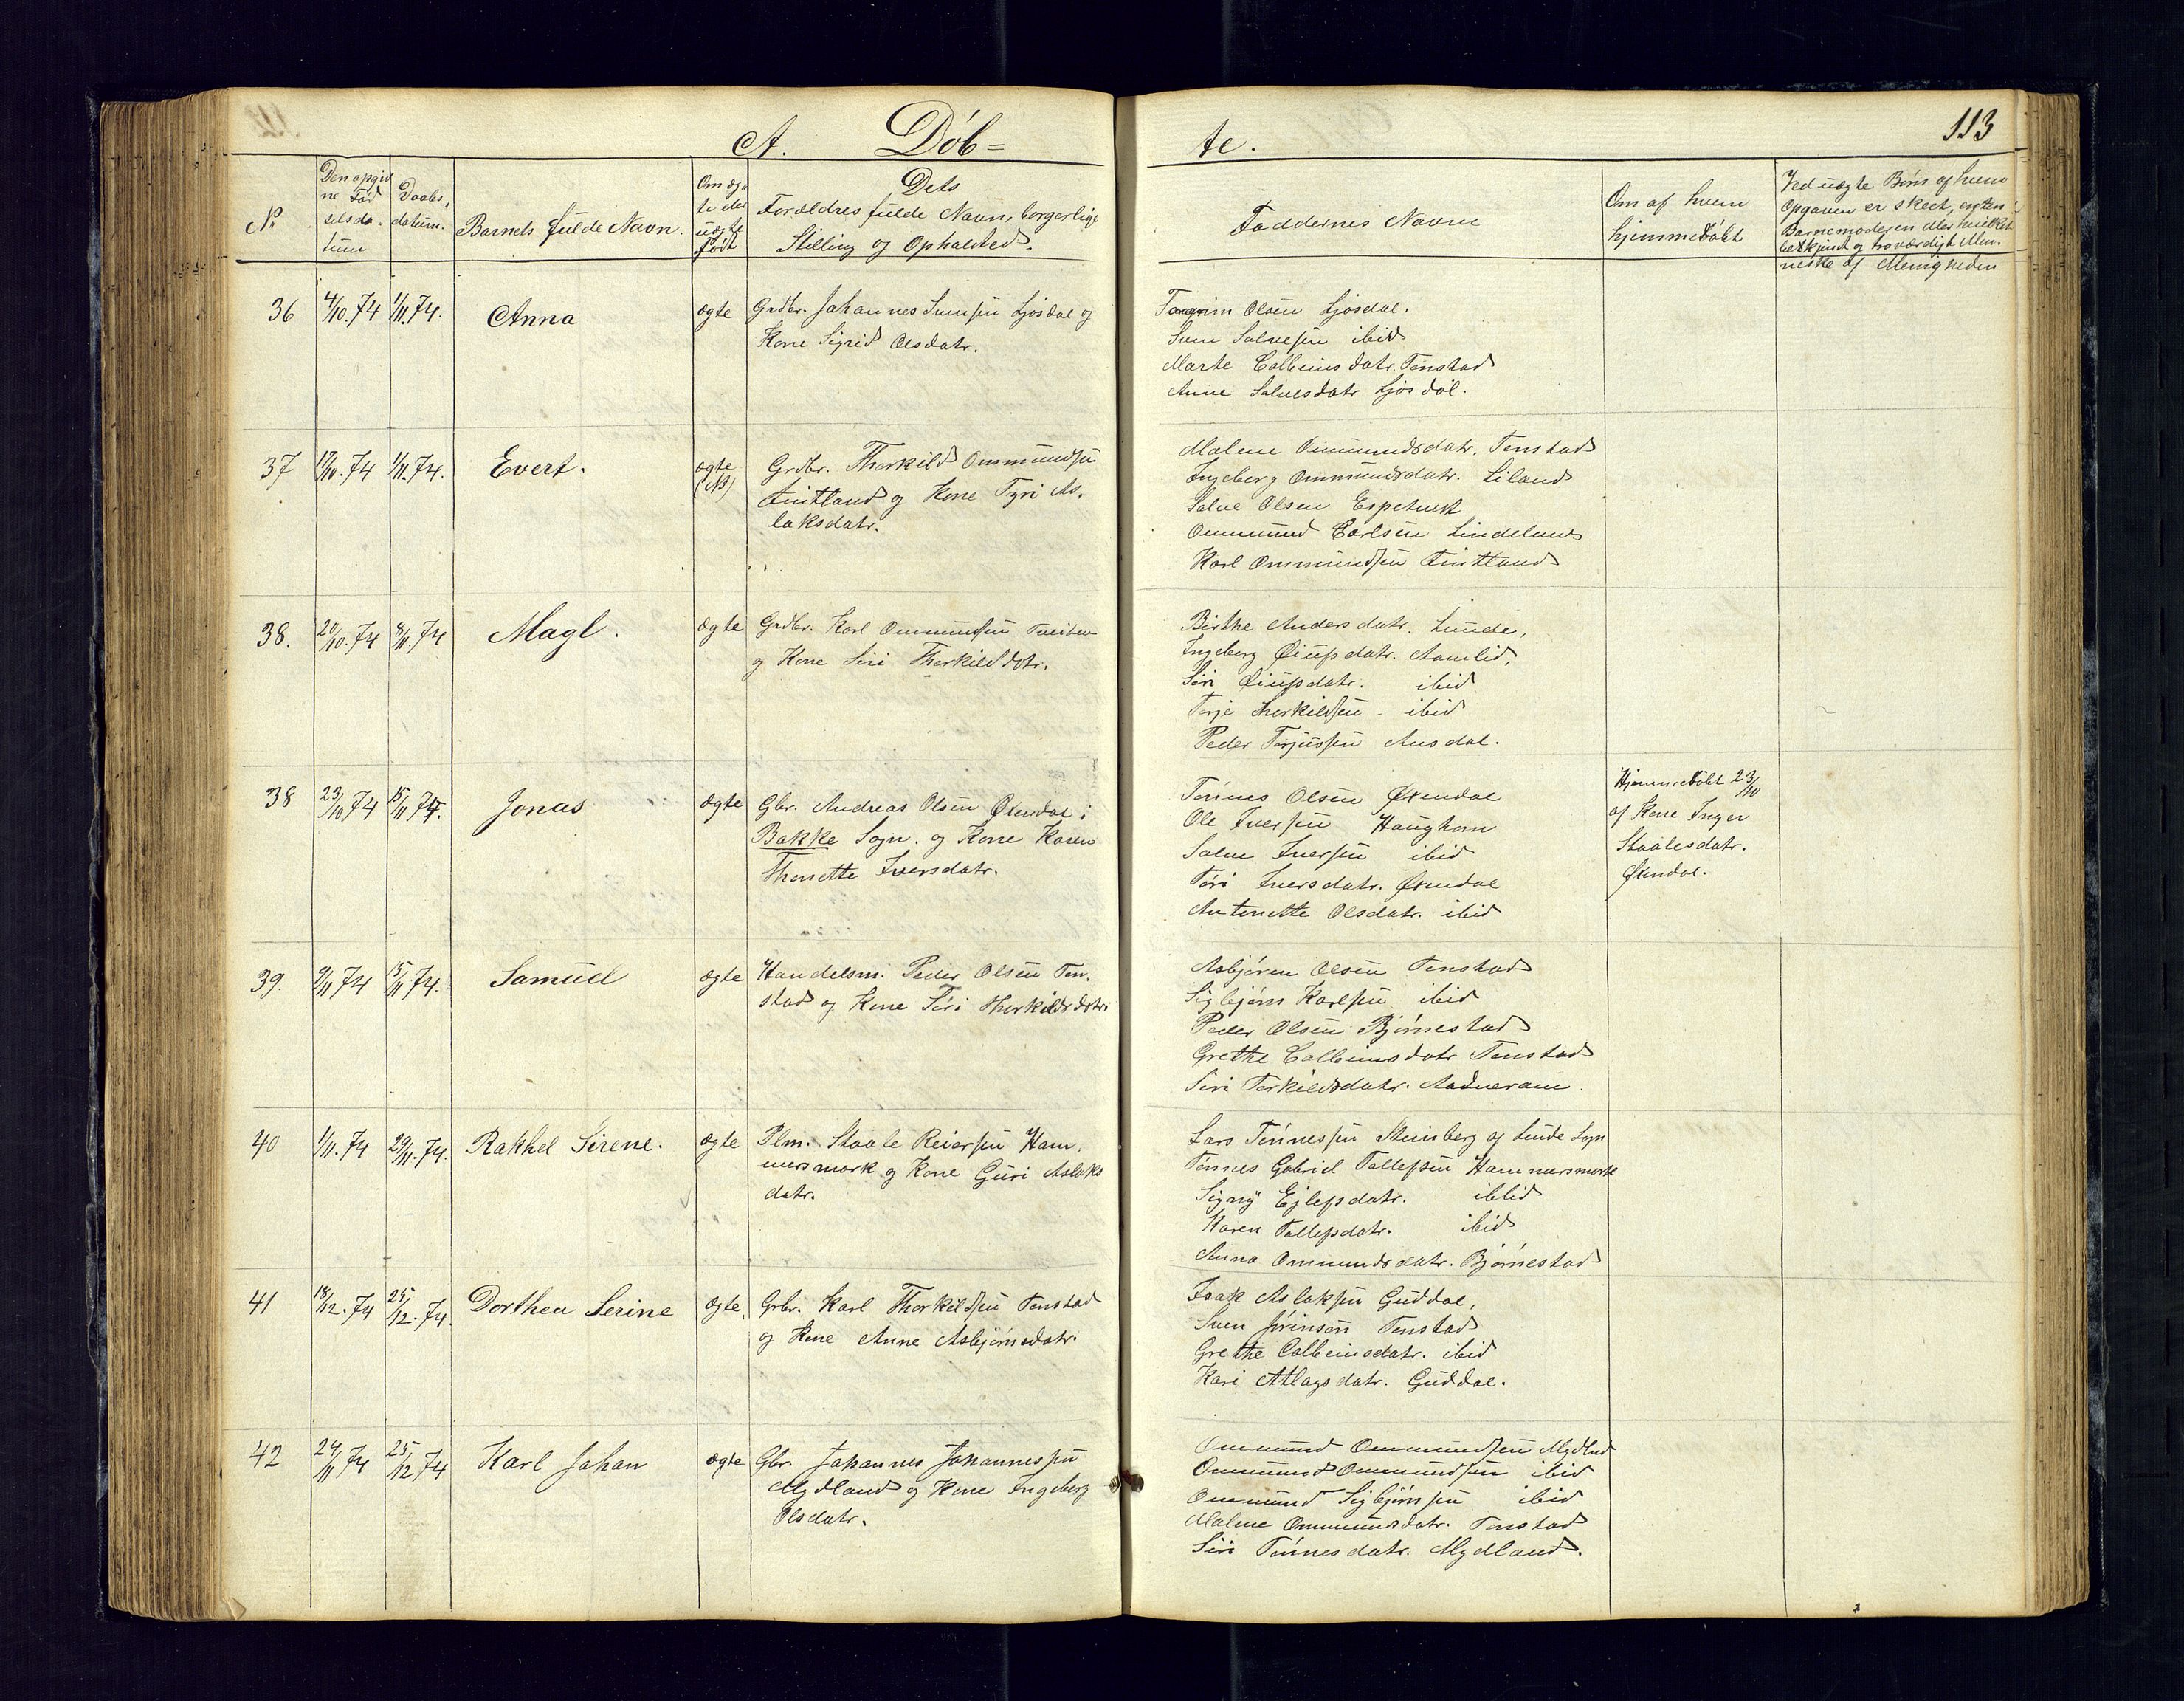 A. Döb=
te.
113
No
Den opgiv
ne Fød
selsda.
tum
Daabs,
datum.
Barnets fulde Navn.
Om æg
te eller
uægte
Født
Dets
Forældres fulde Navn, borgerlige
Stilling og Opholdsted.
Faddernes Navne
Om af hvem
hjemmedöbt
Ved uægte Börn af hvem
Opgaven er skeet, enten
Barnemoderen eller hvilket
bekjendt og troværdigt Men-
neske af Menigheden
36 4/10.74 1/11.74. Anna ægte Grdbr. Johannes Svensen Ljosdal og
Kone Sigrid Olsdatr.
Olsen Ljosdal.
Sven Salvesen ibid
Marte Colbeinsdatr. Tonstad
Anne Salvesdatr Ljosdal.
37 17/10.74 1/11.74. Evert. ægte
(NB)
Grdbr. Therkild Ommundsen
Kvitland og Kone Tyri As.
laksdatr.
Malene Ommundsdatr. Tonstad
Ingeberg Ommundsdatr. Liland
Salve Olsen Espetveit
Ommund Carlsen Lindeland
Karl Ommundsen Kvitland
38. 20/10.74 8/11.74 Magl. ægte Grdbr. Karl Ommundsen Tveiten
og Kone Siri Therkildsdtr.
Birthe Andersdatr. Lunde,
Ingeberg Eiupsdatr. Aamlid,
Siri Eiupsdatr. ibid
Terje Therkildsen ibid
Peder Terjussen Ausdal.
38 23/10 74 15/11 74. Jonas ægte Gbr. Andreas Olsen Øxendal i
Bakke Sogn. og Kone Karen
Thonette Iversdatr.
Tönnes Olsen Øxendal
Ole Iversen Haughom
Salve Iversen ibid
Töri Iversdatr. Øxendal
Antonette Olsdatr. ibid
Hjemmedöbt 23/10
af Kone Inger
Staalesdatr.
Øxendal.
39. 9/11 74 15/11 74. Samuel ægte Handelsm. Peder Olsen Ton.
stad og Kone Siri Therkildsdatr.
Asbjörn Olsen Tonstad
Sigbjörn Karlsen ibid
Peder Olsen Bjørnestad
Grethe Colbeinsdatr Tonstad
Siri Terkildsdatr. Aadneram.
40 1/11.74 29/11.74. Rakhel Sirene. ægte Plm. Staale Reiersen Ham,
mersmark og Kone Guri Aslaks
datr.
Lars Tönnessen Steinberg af Lunde Sogn
Tönnes Gabriel Tollefsen Hammersmark
Signy Ejlefsdatr. ibbid
Karen Tollefsdatr. ibid
Anna Ommundsdatr. Bjørnestad
41 18/12.74 25/12.74. Dorthea Serine ægte, Grbr. Karl Therkildsen Tonstad
og Kone Anne Asbjørnsdatr.
Isak Aslaksen Guddal,
Sven Tonstad
Grethe Colbeinsdatr. ibid
Kari Atlagsdatr. Guddal.
42 24/11 74 25/12 74 Karl Johan ægte Gbr. Johannes Johannessen
Mydland og Kone Ingeberg
Olsdatr.
Ommund Ommundsen Mydland
Ommund Ommundsen ibid
Ommund Sigbjörnsen ibid
Malene Ommundsdatr. Tonstad
Siri Tönnesdatr. Mydland.